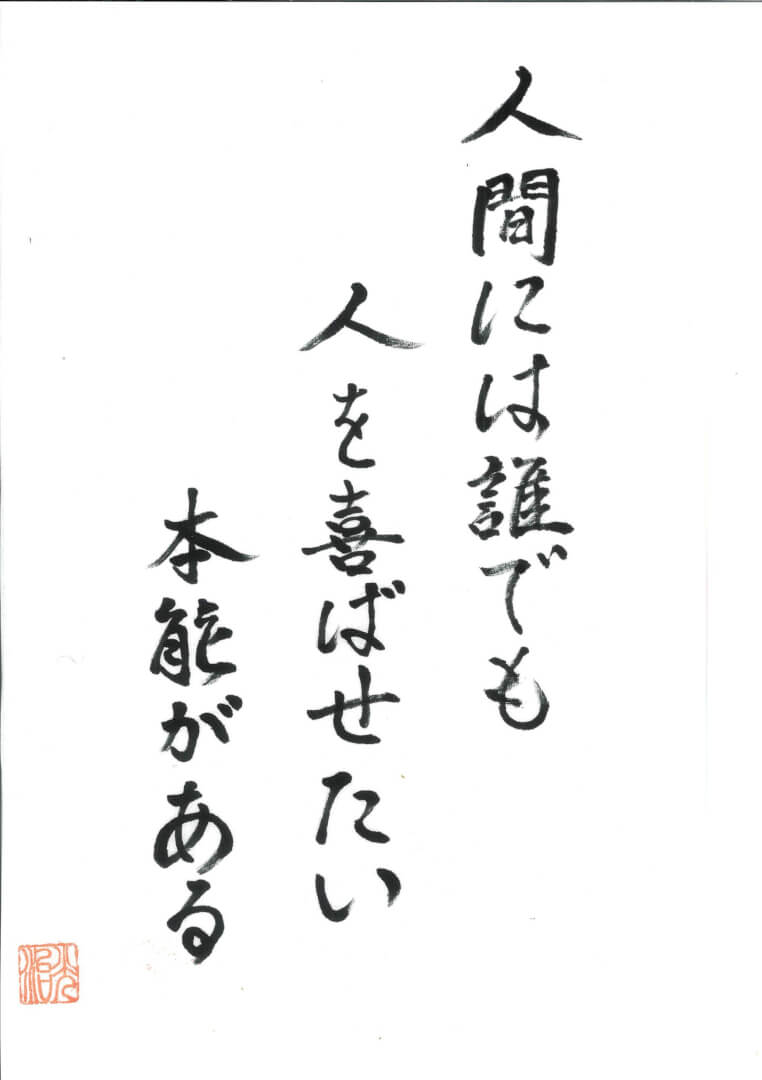 人間には誰でも
人を喜ばせたい
本能がある